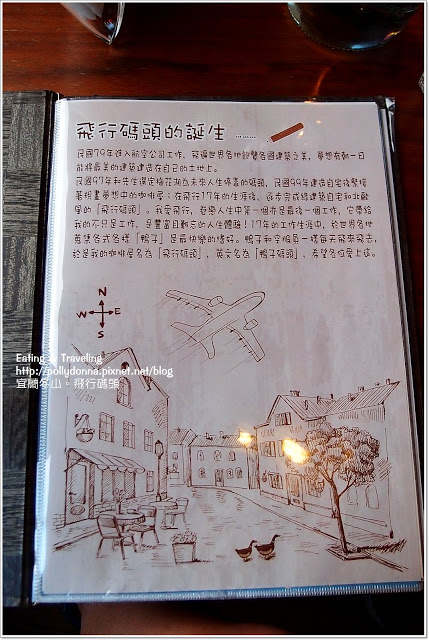 飛行碼頭的誕生......
民國79年進入航空公司工作，飛遍世界各地飽覽各國建築之美，夢想有朝一日
能將最美的建築建造在自己的土地上。
民國97年和先生選定梅花湖為未來人生停靠的碼頭，民國99年建造自宅後緊接
著規畫夢想中的咖啡屋；在飛行17年的生涯後，逐步完成綠建築自宅和北歐
風的「飛行碼頭」。我愛飛行，眷戀人生中第一個亦是最後一個工作，它帶給
我的不只是工作，是豐富且難忘的人生體驗！17年的工作生涯中，於世界各地
蒐集各式各樣「鴨子」是最快樂的嗜好。鴨子和空服員一樣每天飛來飛去，
於是我的咖啡屋名為「飛行碼頭」，英文名為「鴨子碼頭」，希望各位愛上這。
N
W E
S
Eating & Traveling
http://pollydonna.pixnet.net/blog
宜蘭冬山。飛行碼頭